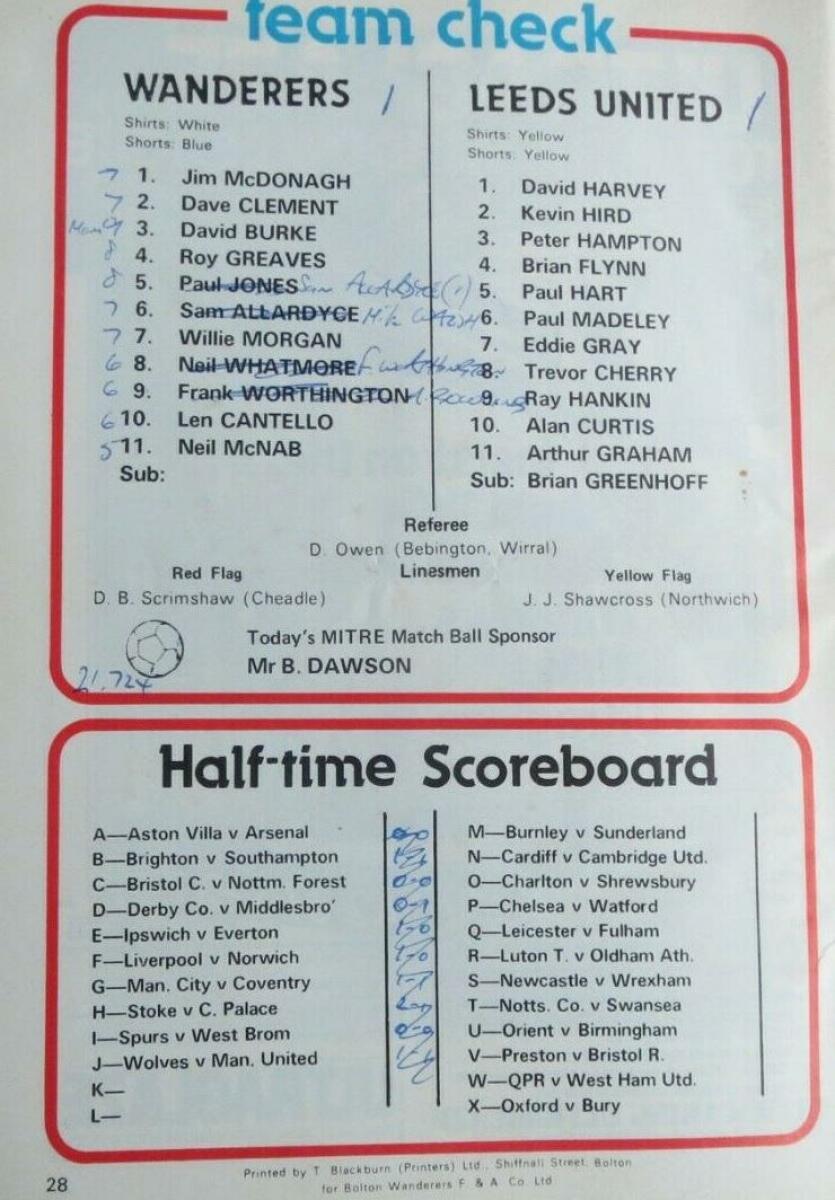 team check
WANDERERS 1
Shirts: White
Shorts: Blue
7 1. Jim McDONAGH
7 2. Dave CLEMENT
3. David BURKE
8 4. Roy GREAVES
8 5. Paul JONES Sam ALLARDYCE (1)
7 6. Sam ALLARDYCE Mike WALSH
7 7. Willie MORGAN
6 8. Neil WHATMORE F Worthington
6 9. Frank WORTHINGTON
6 10. Len CANTELLO
5 11. Neil McNAB
Sub:
LEEDS UNITED 1
Shirts: Yellow
Shorts: Yellow
1. David HARVEY
2. Kevin HIRD
3. Peter HAMPTON
4. Brian FLYNN
5. Paul HART
6. Paul MADELEY
7. Eddie GRAY
8. Trevor CHERRY
9. Ray HANKIN
10. Alan CURTIS
11. Arthur GRAHAM
Sub: Brian GREENHOFF
Referee
D. Owen (Bebington, Wirral)
Red Flag Linesmen Yellow Flag
D. B. Scrimshaw (Cheadle) J. J. Shawcross (Northwich)
Today's MITRE Match Ball Sponsor
Mr B. DAWSON
21,724
Half-time Scoreboard
A—Aston Villa v Arsenal 0-0
B—Brighton v Southampton
C—Bristol C. v Nottm. Forest 0-0
D—Derby Co. v Middlesbro' 0-1
E—Ipswich v Everton 1-0
F—Liverpool v Norwich 1-0
G—Man. City v Coventry 1-1
H—Stoke v C. Palace
I—Spurs v West Brom 0-0
J—Wolves v Man. United
K—
L—
M—Burnley v Sunderland
N—Cardiff v Cambridge Utd.
O—Charlton v Shrewsbury
P—Chelsea v Watford
Q—Leicester v Fulham
R—Luton T. v Oldham Ath.
S—Newcastle v Wrexham
T—Notts. Co. v Swansea
U—Orient v Birmingham
V—Preston v Bristol R.
W—QPR v West Ham Utd.
X—Oxford v Bury
28
Printed by T. Blackburn (Printers) Ltd., Shiffnall Street, Bolton
for Bolton Wanderers F & A Co Ltd